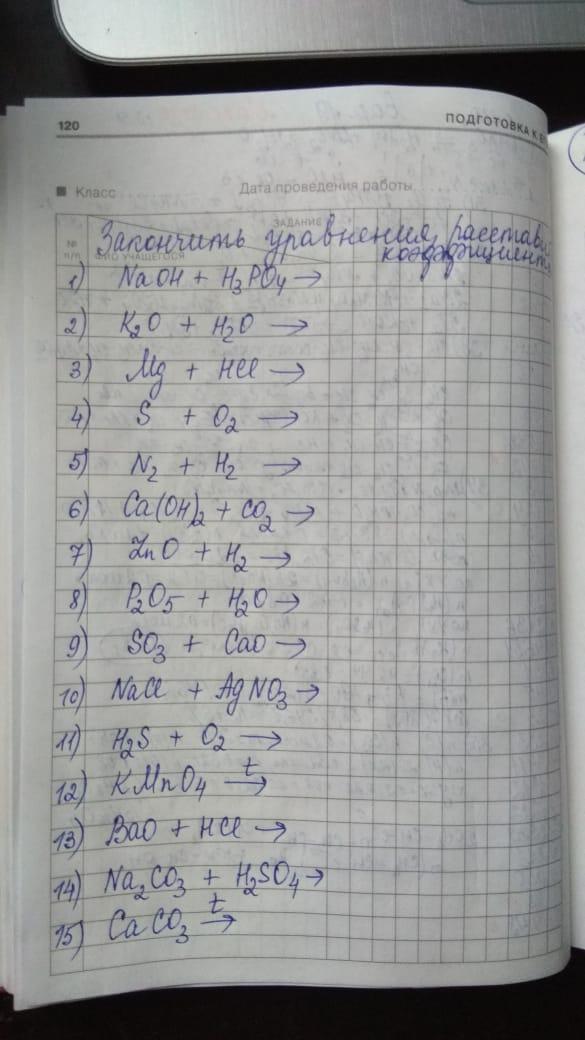 120
ПОДГОТОВКА К
Класс
Дата проведения работы
ЗАДАНИЕ
Закончить уравнения, расставит
№ п/п ФИО УЧАЩЕГОСЯ коэффициент
1) NaOH + H₃PO₄ →
2) K₂O + H₂O →
3) Mg + HCl →
4) S + O₂ →
5) N₂ + H₂ →
6) Ca(OH)₂ + CO₂ →
7) ZnO + H₂ →
8) P₂O₅ + H₂O →
9) SO₃ + CaO →
10) NaCl + AgNO₃ →
11) H₂S + O₂ →
12) KMnO₄ t→
13) BaO + HCl →
14) Na₂CO₃ + H₂SO₄ →
15) CaCO₃ t→